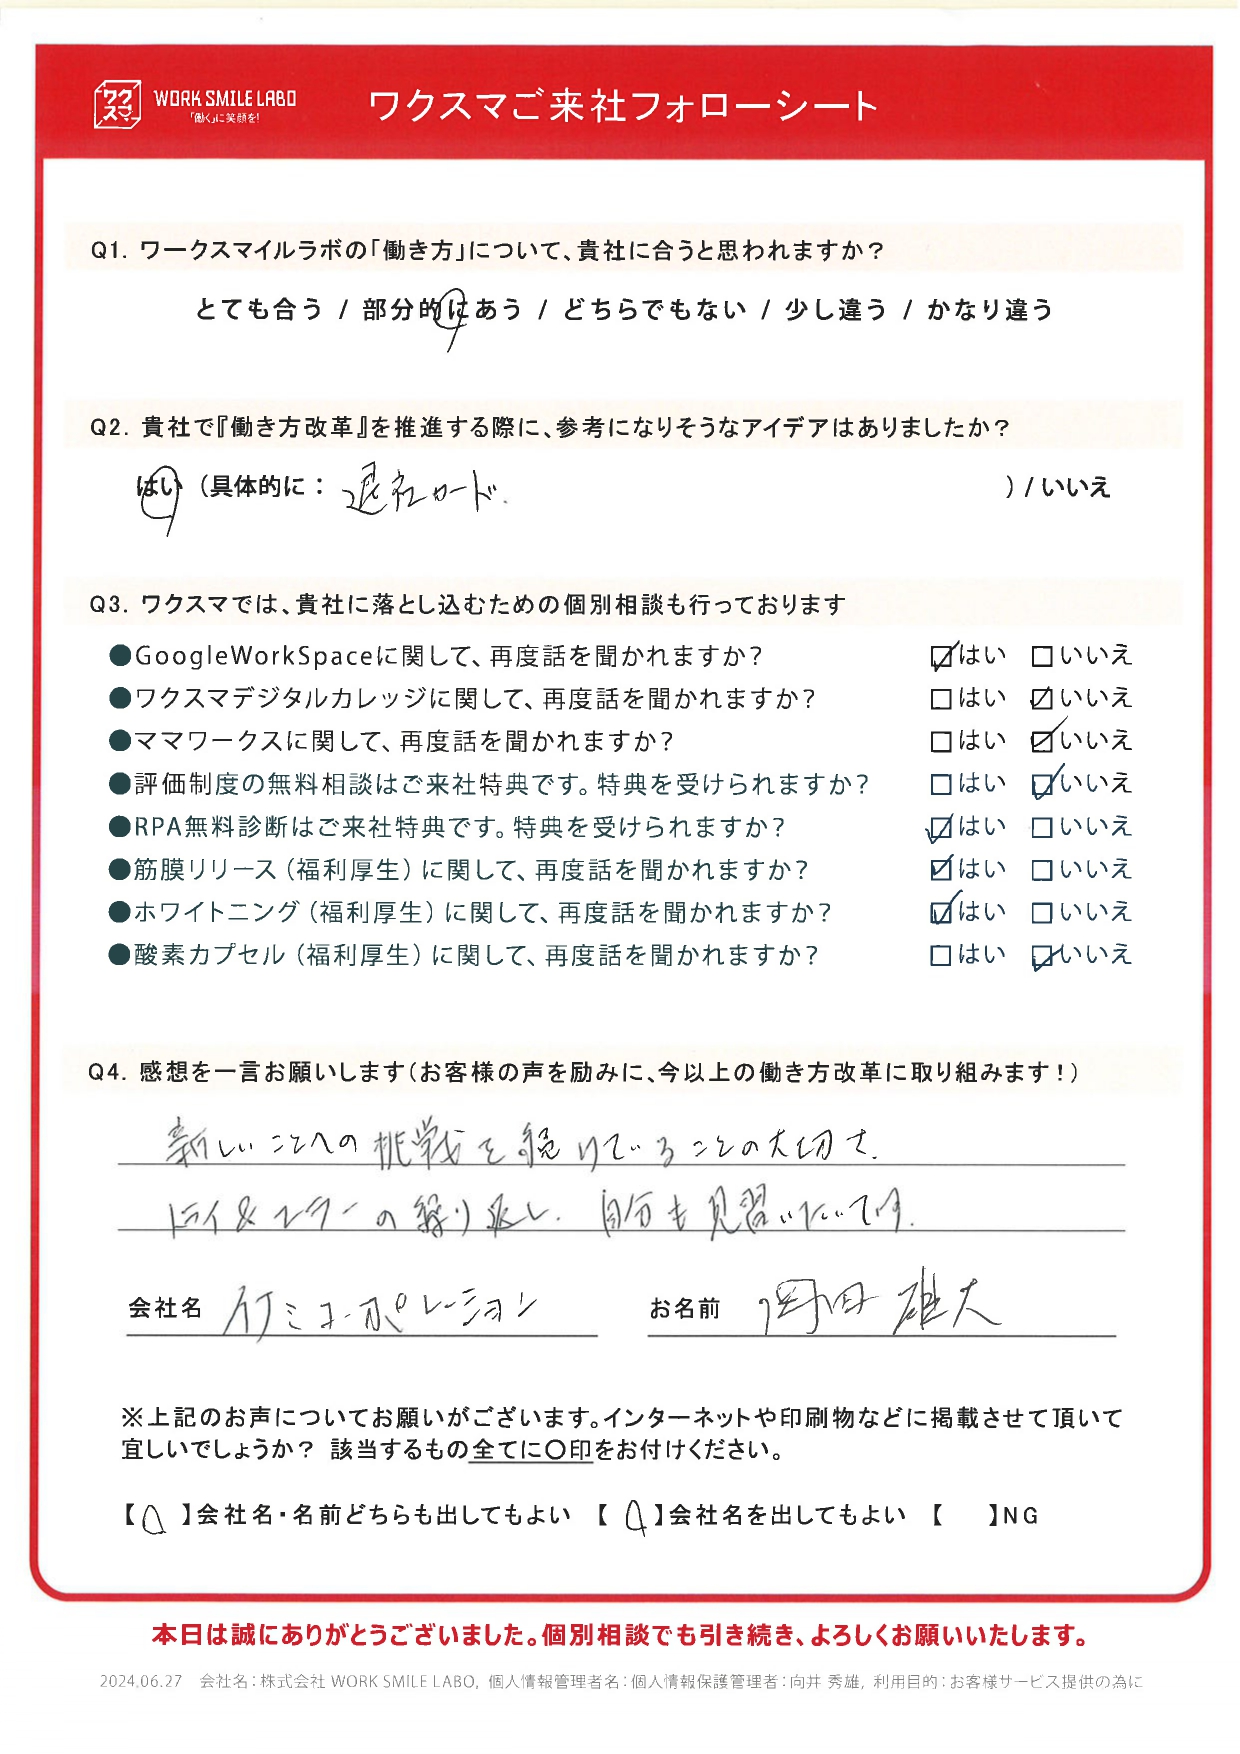 ワクスマ WORK SMILE LABO
「働く」に笑顔を!
ワクスマご来社フォローシート
Q1. ワークスマイルラボの「働き方」について、貴社に合うと思われますか？
とても合う / 部分的にあう / どちらでもない / 少し違う / かなり違う
Q2. 貴社で『働き方改革』を推進する際に、参考になりそうなアイデアはありましたか？
はい (具体的に： 退社カード. ) / いいえ
Q3. ワクスマでは、貴社に落とし込むための個別相談も行っております
●GoogleWorkSpaceに関して、再度話を聞かれますか？ ☑はい □いいえ
●ワクスマデジタルカレッジに関して、再度話を聞かれますか？ □はい ☑いいえ
●ママワークスに関して、再度話を聞かれますか？ □はい ☑いいえ
●評価制度の無料相談はご来社特典です。特典を受けられますか？ □はい ☑いいえ
●RPA無料診断はご来社特典です。特典を受けられますか？ ☑はい □いいえ
●筋膜リリース（福利厚生）に関して、再度話を聞かれますか？ ☑はい □いいえ
●ホワイトニング（福利厚生）に関して、再度話を聞かれますか？ ☑はい □いいえ
●酸素カプセル（福利厚生）に関して、再度話を聞かれますか？ □はい ☑いいえ
Q4. 感想を一言お願いします（お客様の声を励みに、今以上の働き方改革に取り組みます！）
新しいことへの挑戦を続けていることの大切さ.
トライ&エラーの繰り返し. 自分も見習いたいです.
会社名 ミコーポレーション お名前 岡田 雄大
※上記のお声についてお願いがございます。インターネットや印刷物などに掲載させて頂いて
宜しいでしょうか？ 該当するもの全てに〇印をお付けください。
【○】会社名・名前どちらも出してもよい 【○】会社名を出してもよい 【 】NG
本日は誠にありがとうございました。個別相談でも引き続き、よろしくお願いいたします。
2024.06.27 会社名：株式会社 WORK SMILE LABO, 個人情報管理者名：個人情報保護管理者：向井 秀雄, 利用目的：お客様サービス提供の為に